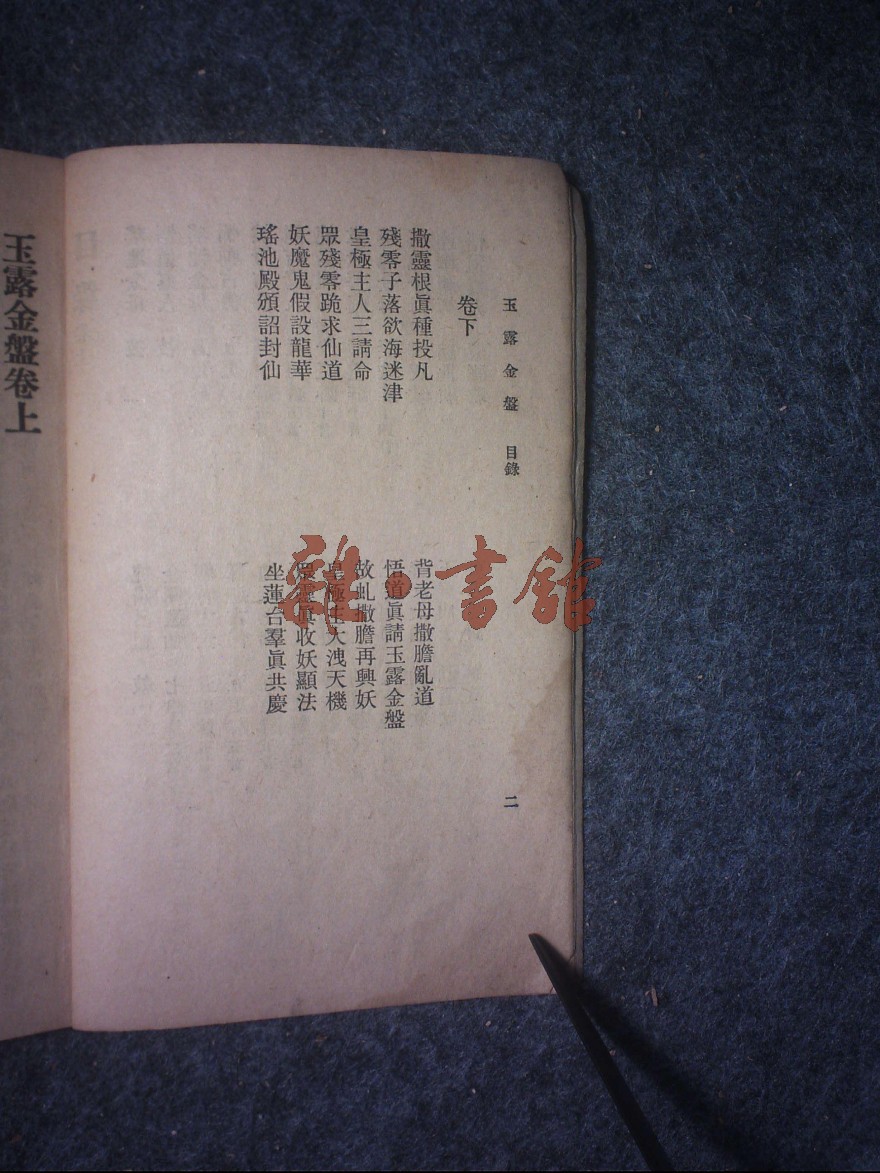 玉露金盤 目錄 二
卷下
撒靈根眞種投凡 背老母撒膽亂道
殘零子落欲海迷津 悟道眞請玉露金盤
皇極主人三請命 故虬撒膽再興妖
眾殘零跪求仙道 皇極主大洩天機
妖魔鬼假設龍華 眾靈眞收妖顯法
瑤池殿頒詔封仙 坐蓮台羣眞共慶
玉露金盤卷上
雜·書館